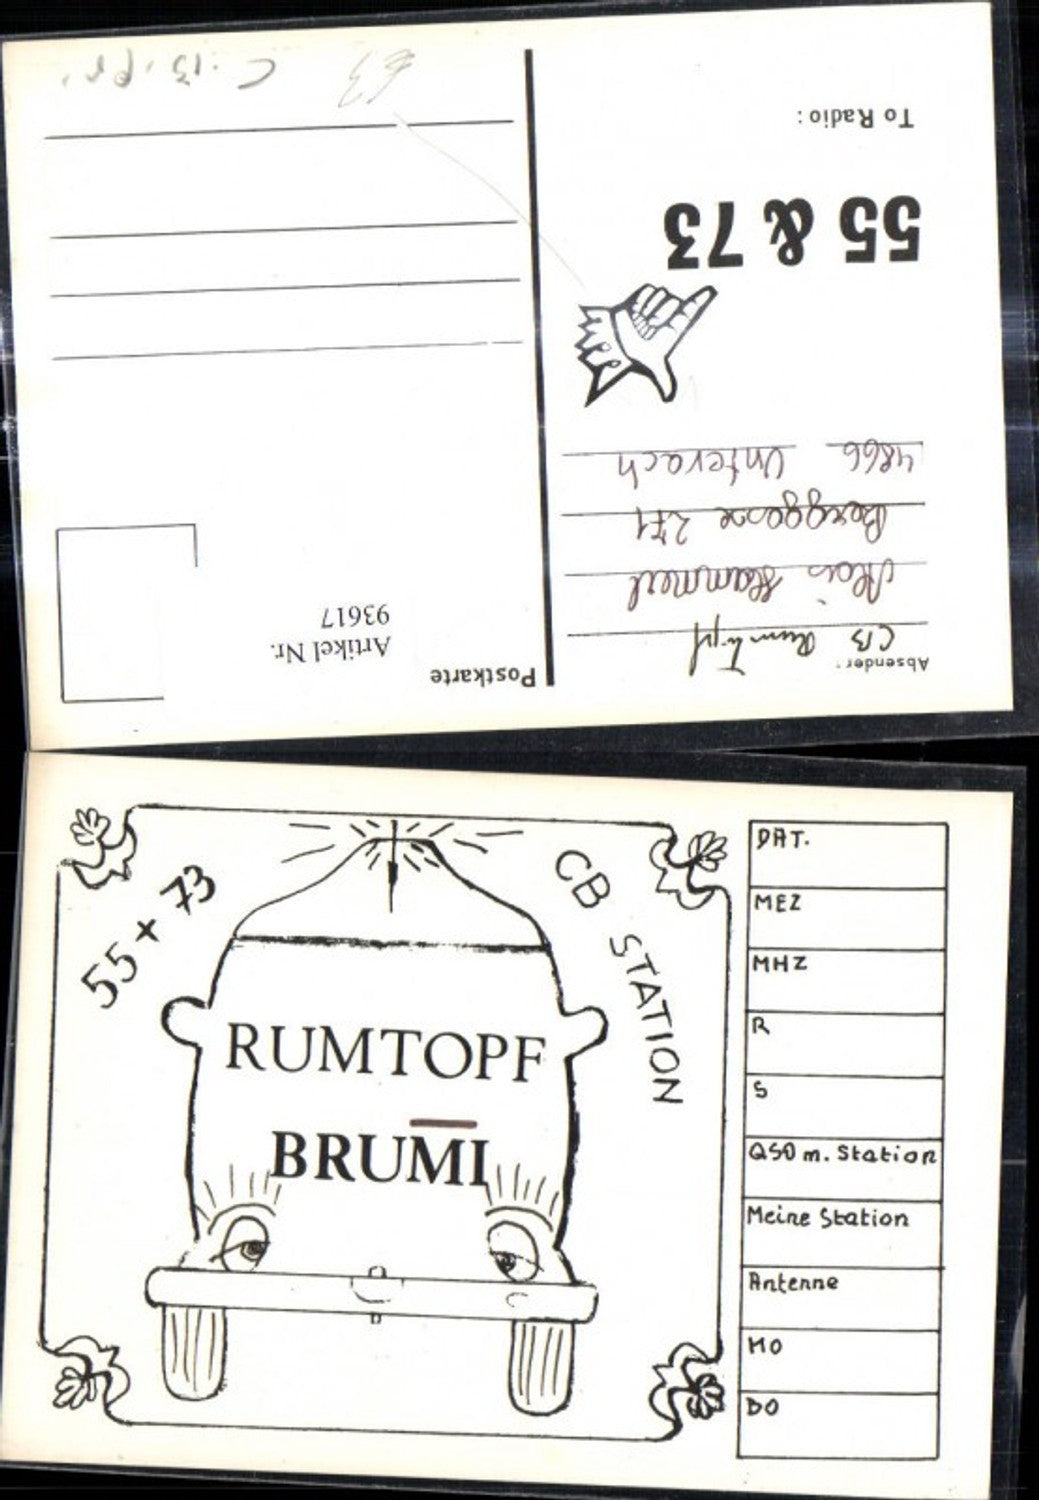 Absender:
CB Rumtopf
Alois Hammerl
Berggasse 271
4866 Unterach
55 & 73
To Radio:
Postkarte
Artikel Nr.
93617
55 + 73
CB STATION
RUMTOPF
BRUMI
DAT.
MEZ
MHZ
R
S
QSO m. Station
Meine Station
Antenne
MO
DO